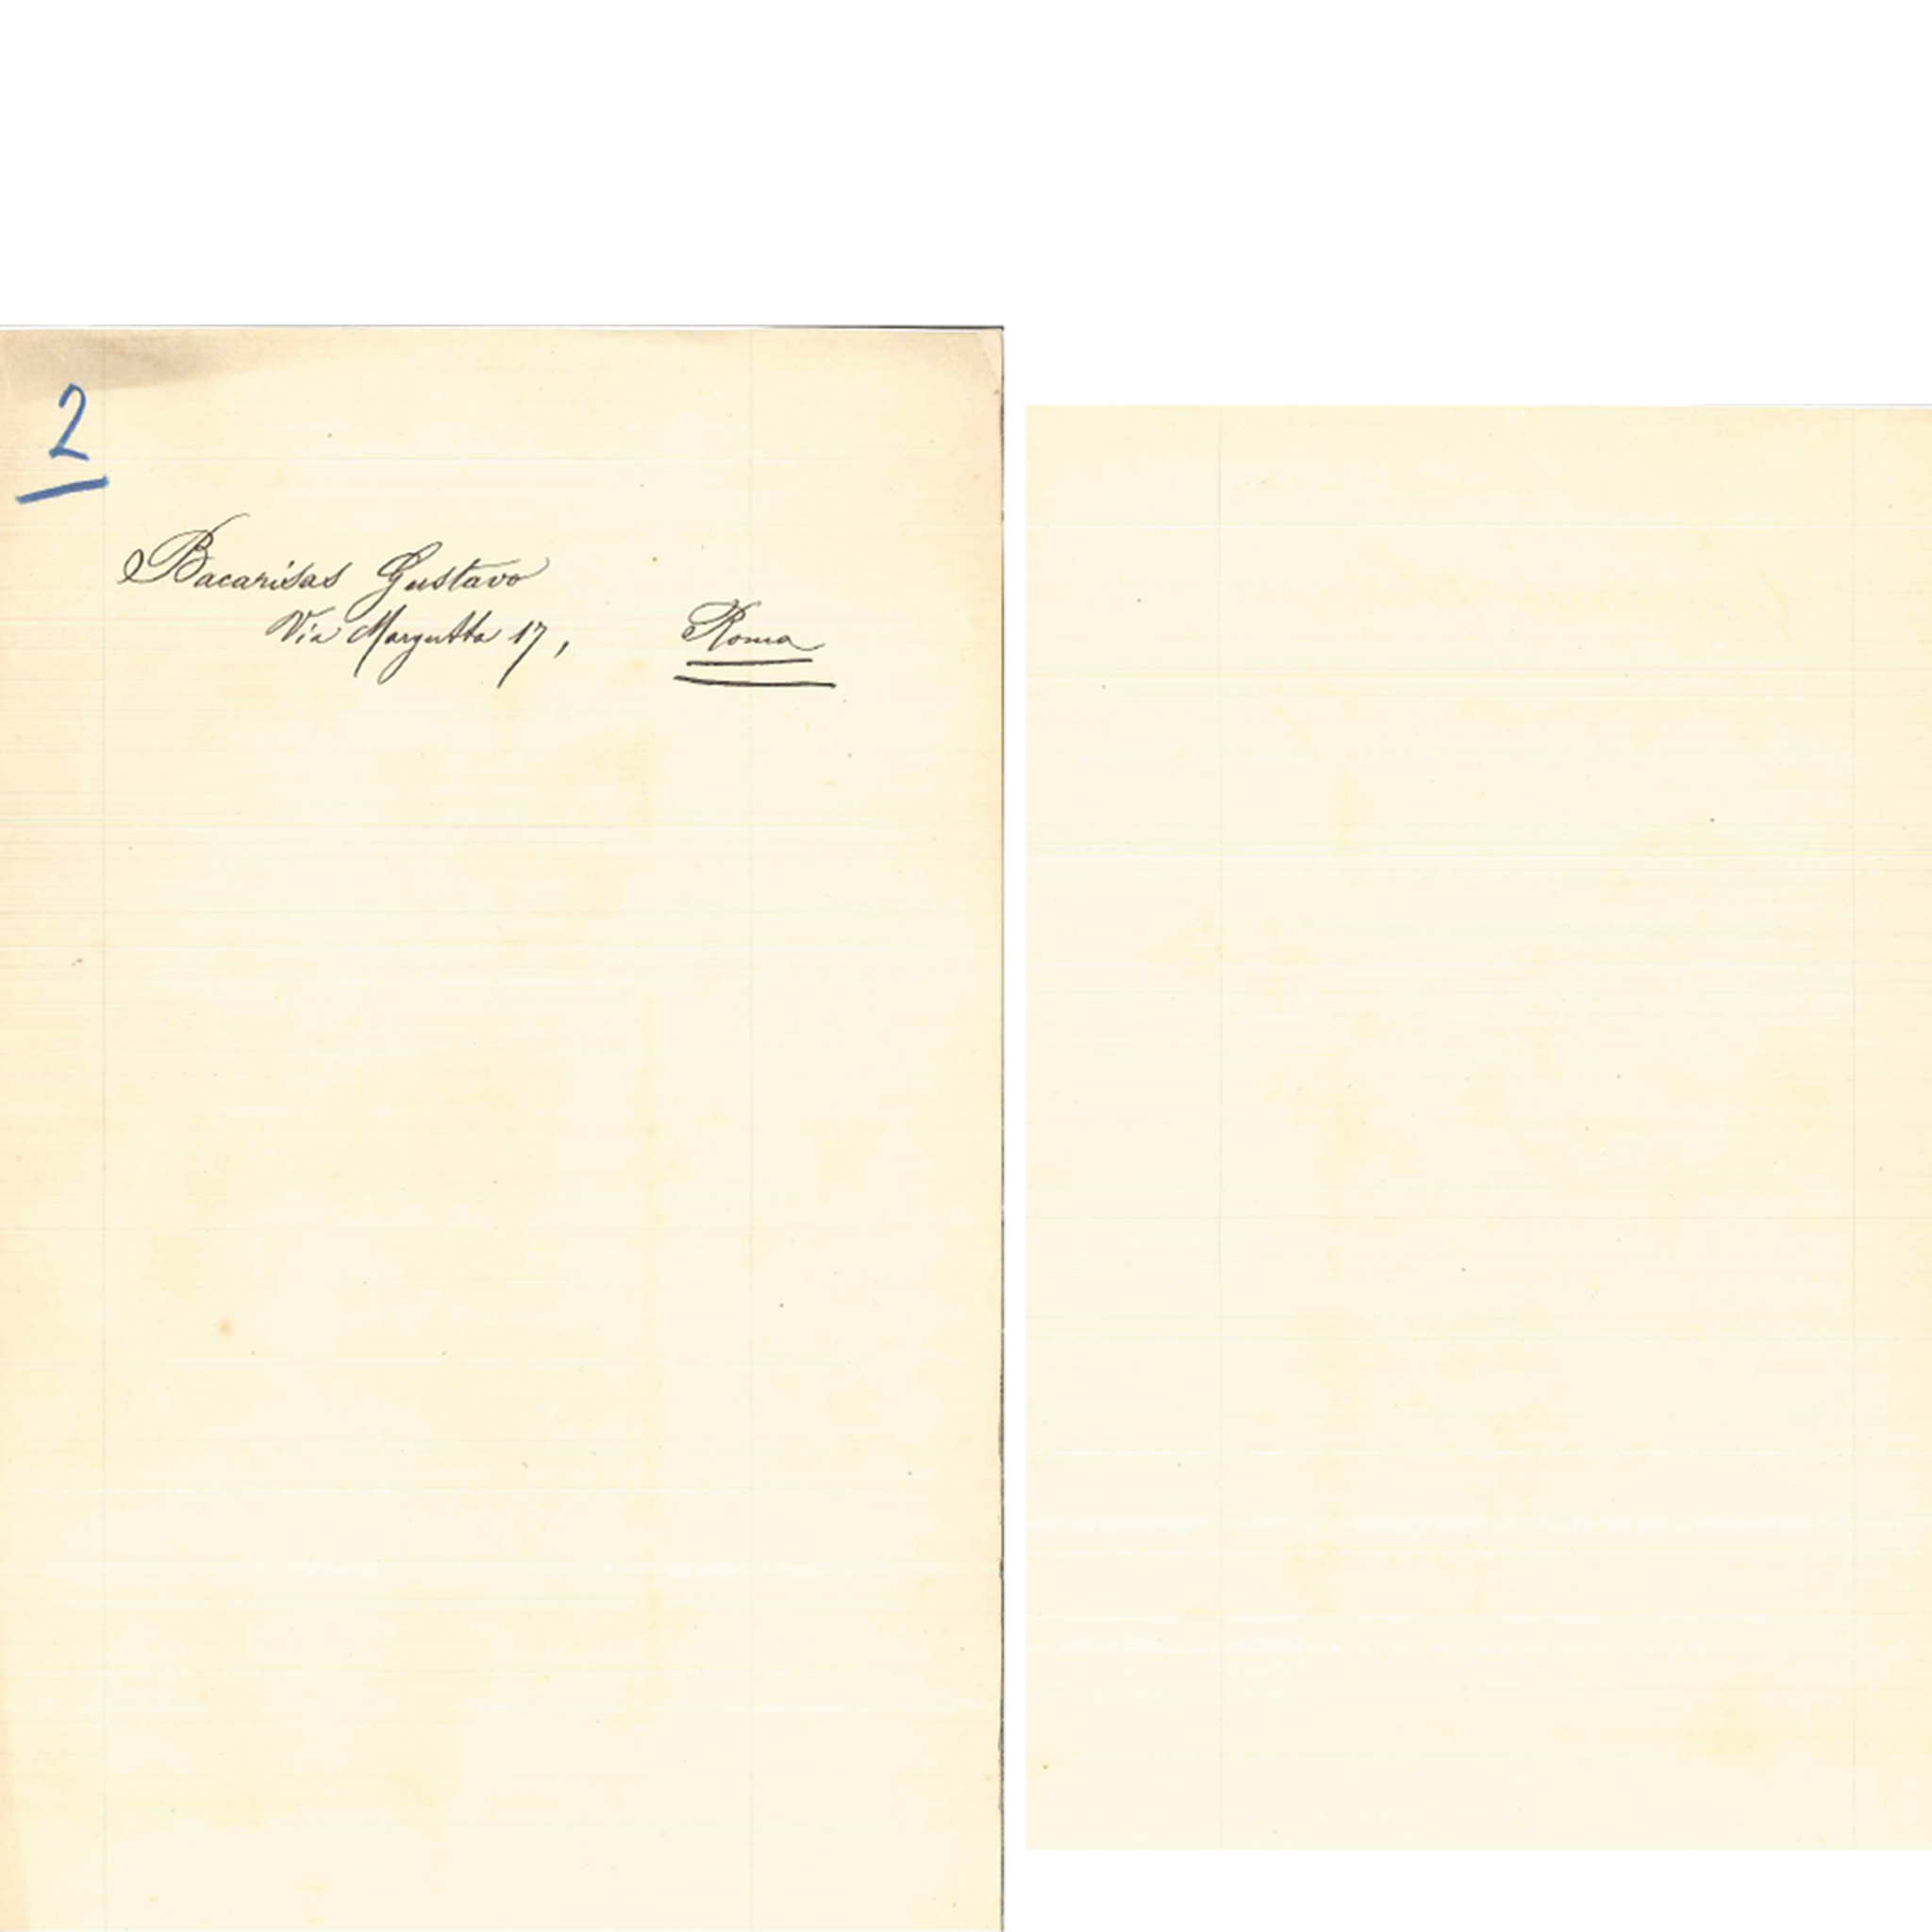 2
Bacarisas Gustavo
Via Margutta 17, Roma